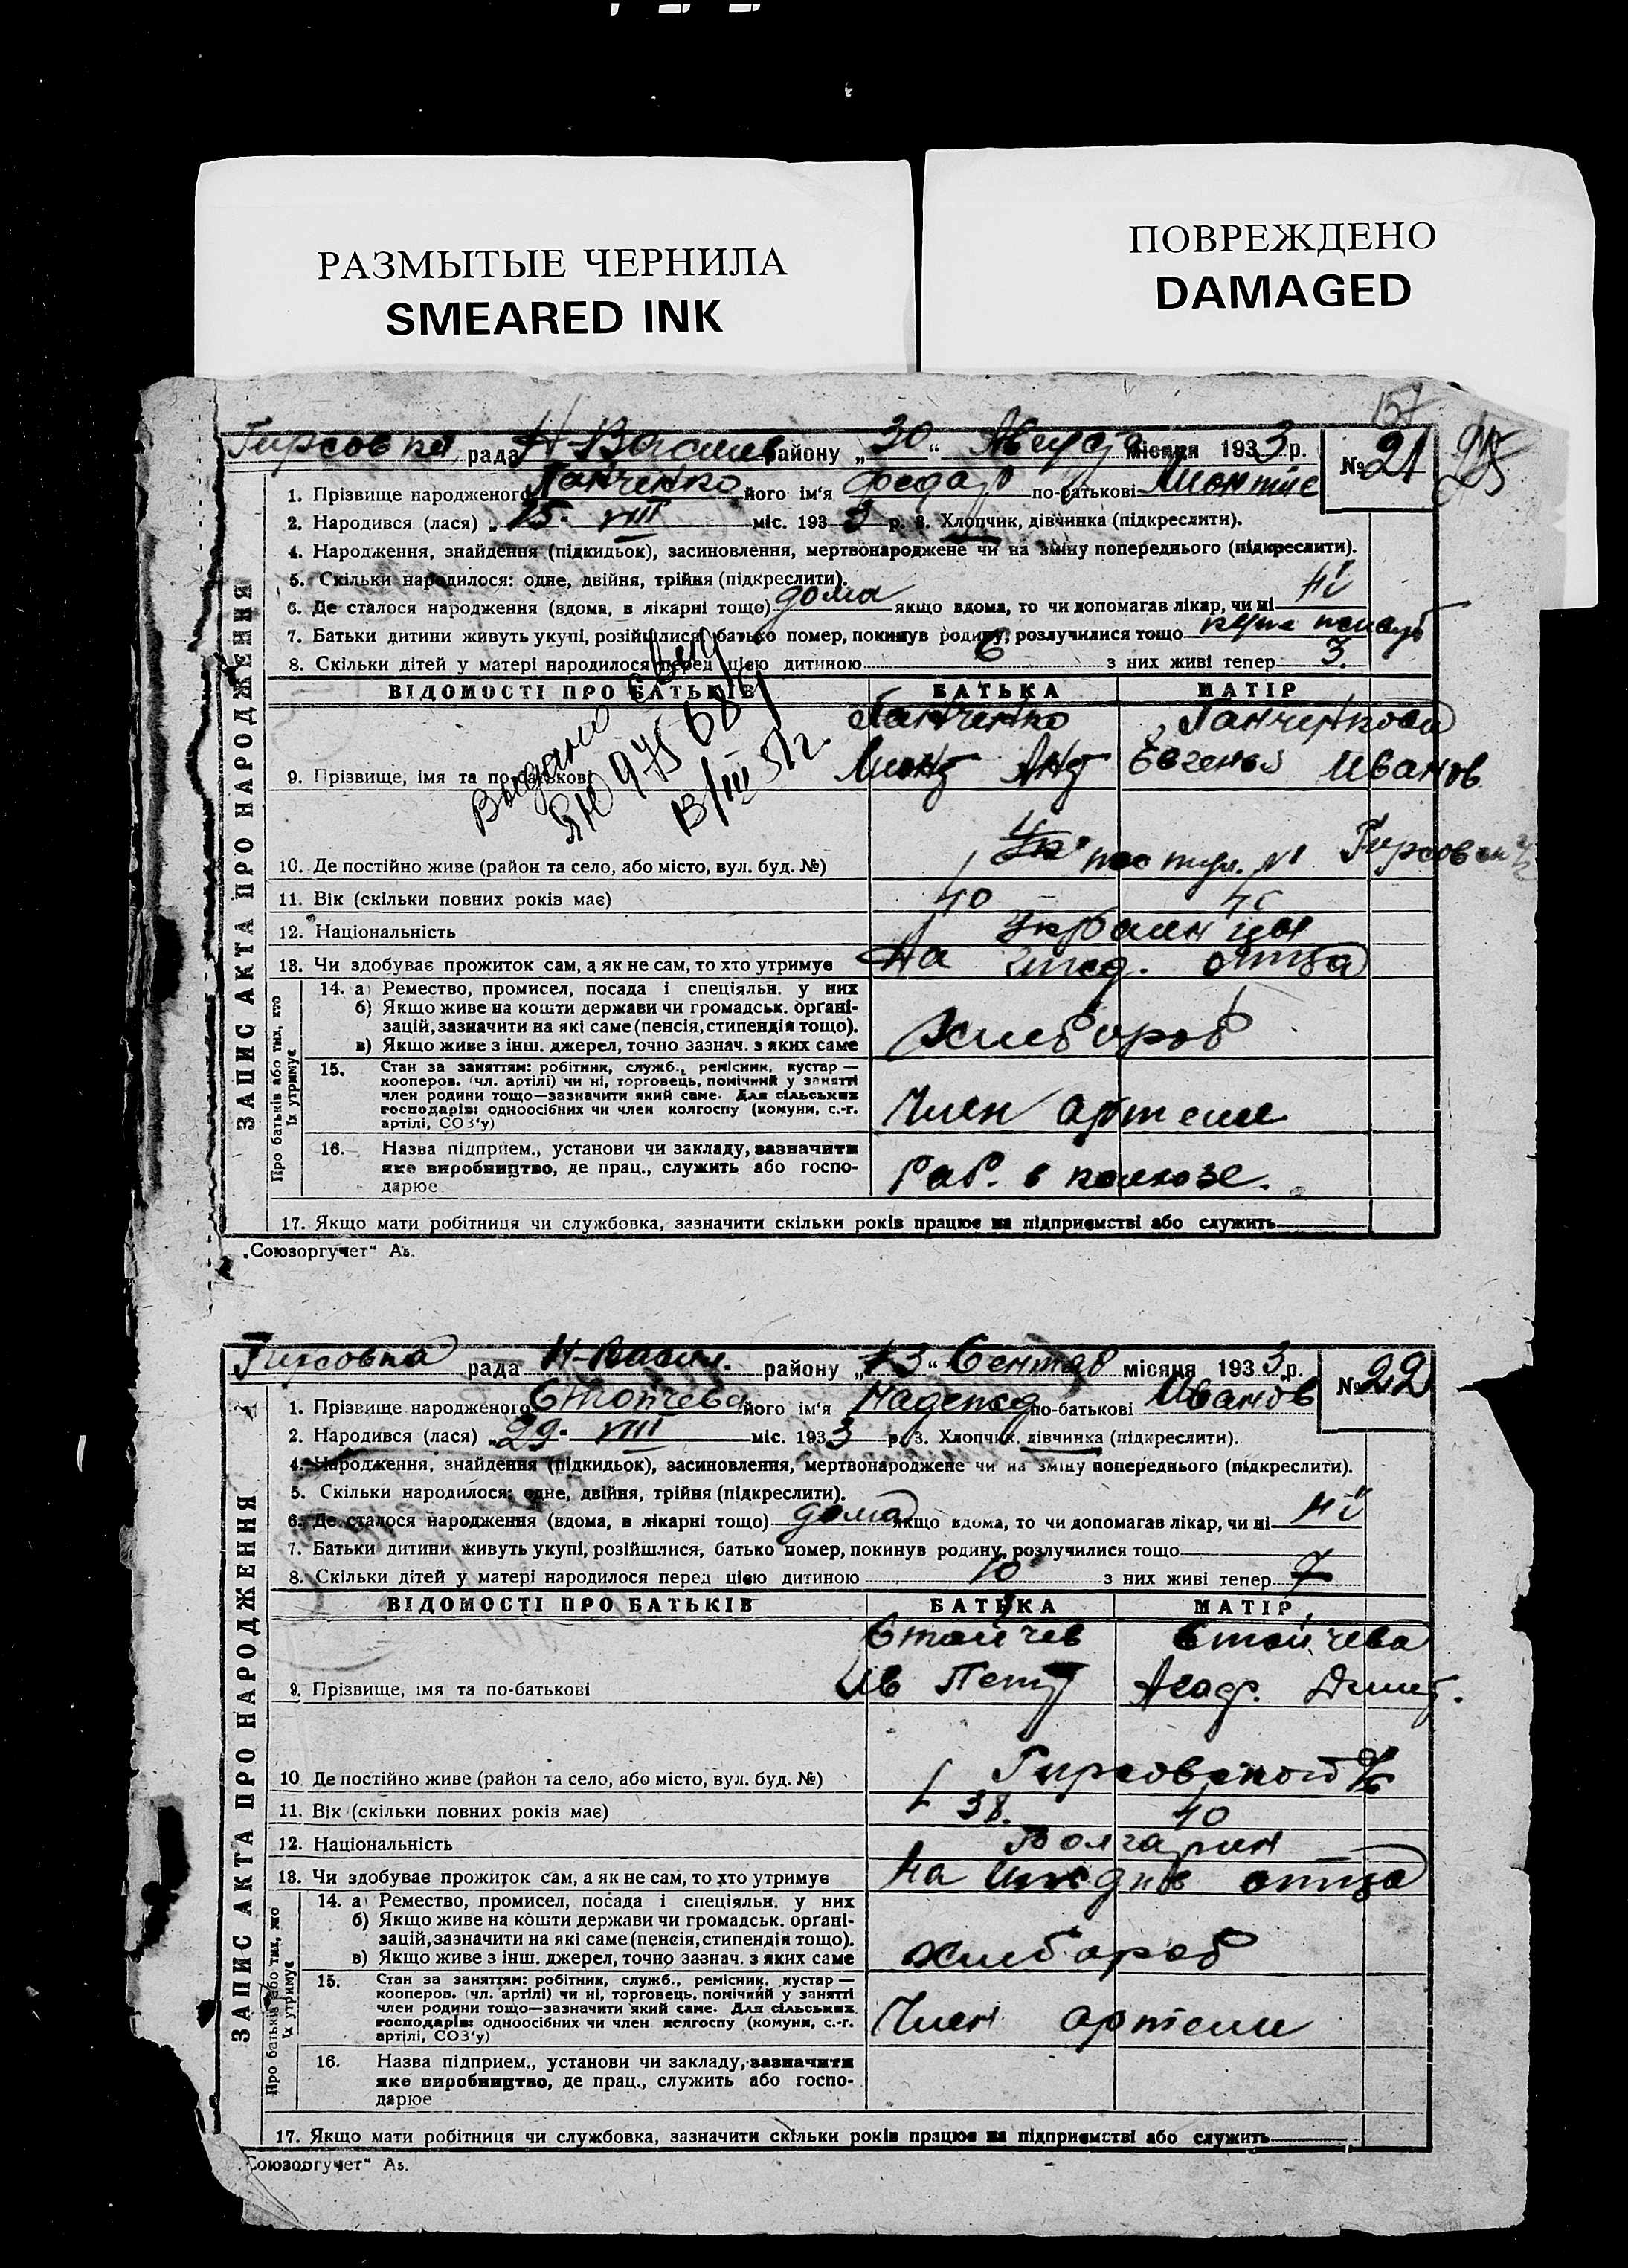 РАЗМЫТЫЕ ЧЕРНИЛА
SMEARED INK
ПОВРЕЖДЕНО
DAMAGED
157
Гирсовка рада Н-Васил району „30“ Август місяця 1933 р. № 21
1. Прізвище народженого Панченко його ім'я Федор по-батькові
2. Народився (лася) „25. VIII міс. 1933 р. 3. Хлопчик, дівчинка (підкреслити).
4. Народження, знайдення (підкидьок), засиновлення, мертвонароджене чи на зміну попереднього (підкреслити).
5. Скільки народилося: одне, двійня, трійня (підкреслити).
6. Де сталося народження (вдома, в лікарні тощо) дома якщо вдома, то чи допомагав лікар, чи ні ні
7. Батьки дитини живуть укупі, розійшлися, батько помер, покинув родину, розлучилися тощо
8. Скільки дітей у матері народилося перед цією дитиною 6 з них живі тепер 3.
ВІДОМОСТІ ПРО БАТЬКІВ БАТЬКА МАТІР
Панченко Панченкова
9. Прізвище, імя та по-батькові Евгенья Иванов
Выдано
10. Де постійно живе (район та село, або місто, вул. буд. №)
11. Вік (скільки повних років має) 40
12. Національність Украинцы
13. Чи здобуває прожиток сам, а як не сам, то хто утримує На ижд. отца
14. а) Ремество, промисел, посада і спеціяльн. у них
б) Якщо живе на кошти держави чи громадськ. органі-
зацій, зазначити на які саме (пенсія, стипендія тощо).
в) Якщо живе з інш. джерел, точно зазнач. з яких саме
хлебороб
15. Стан за заняттям: робітник, служб., ремісник, кустар —
кооперов. (чл. артілі) чи ні, торговець, помічний у занятті
член родини тощо—зазначити який саме. Для сільських
господарів: одноосібних чи член колгоспу (комуни, с.-г.
артілі, СОЗ'у)
Член артели
16. Назва підприєм., установи чи закладу, зазначити
яке виробництво, де прац., служить або госпо-
дарює
Раб. в колхозе.
17. Якщо мати робітниця чи службовка, зазначити скільки років працює на підприємстві або служить
ЗАПИС АКТА ПРО НАРОДЖЕННЯ
Про батьків або тих, хто їх утримує
„Союзоргучет“ Аь.
Гирсовка рада Н-Васил. району „13“ Сентяб місяця 1933 р. № 22
1. Прізвище народженого Стойчева його ім'я Надежд по-батькові Иванов
2. Народився (лася) „29. VIII міс. 1933 р. 3. Хлопчик, дівчинка (підкреслити).
4. Народження, знайдення (підкидьок), засиновлення, мертвонароджене чи на зміну попереднього (підкреслити).
5. Скільки народилося: одне, двійня, трійня (підкреслити).
6. Де сталося народження (вдома, в лікарні тощо) дома якщо вдома, то чи допомагав лікар, чи ні ні
7. Батьки дитини живуть укупі, розійшлися, батько помер, покинув родину, розлучилися тощо
8. Скільки дітей у матері народилося перед цією дитиною 10 з них живі тепер 7
ВІДОМОСТІ ПРО БАТЬКІВ БАТЬКА МАТІР
Стойчев Стойчева
9. Прізвище, імя та по-батькові Ив Петр Агаф. Дмит.
10. Де постійно живе (район та село, або місто, вул. буд. №) Гирсовской
11. Вік (скільки повних років має) 38. 40
12. Національність Болгарин
13. Чи здобуває прожиток сам, а як не сам, то хто утримує На иждив отца
14. а) Ремество, промисел, посада і спеціяльн. у них
б) Якщо живе на кошти держави чи громадськ. органі-
зацій, зазначити на які саме (пенсія, стипендія тощо).
в) Якщо живе з інш. джерел, точно зазнач. з яких саме
хлебороб
15. Стан за заняттям: робітник, служб., ремісник, кустар —
кооперов. (чл. артілі) чи ні, торговець, помічний у занятті
член родини тощо—зазначити який саме. Для сільських
господарів: одноосібних чи член колгоспу (комуни, с.-г.
артілі, СОЗ'у)
Член артели
16. Назва підприєм., установи чи закладу, зазначити
яке виробництво, де прац., служить або госпо-
дарює
17. Якщо мати робітниця чи службовка, зазначити скільки років працює на підприємстві або служить
ЗАПИС АКТА ПРО НАРОДЖЕННЯ
Про батьків або тих, хто їх утримує
Союзоргучет“ Аь.